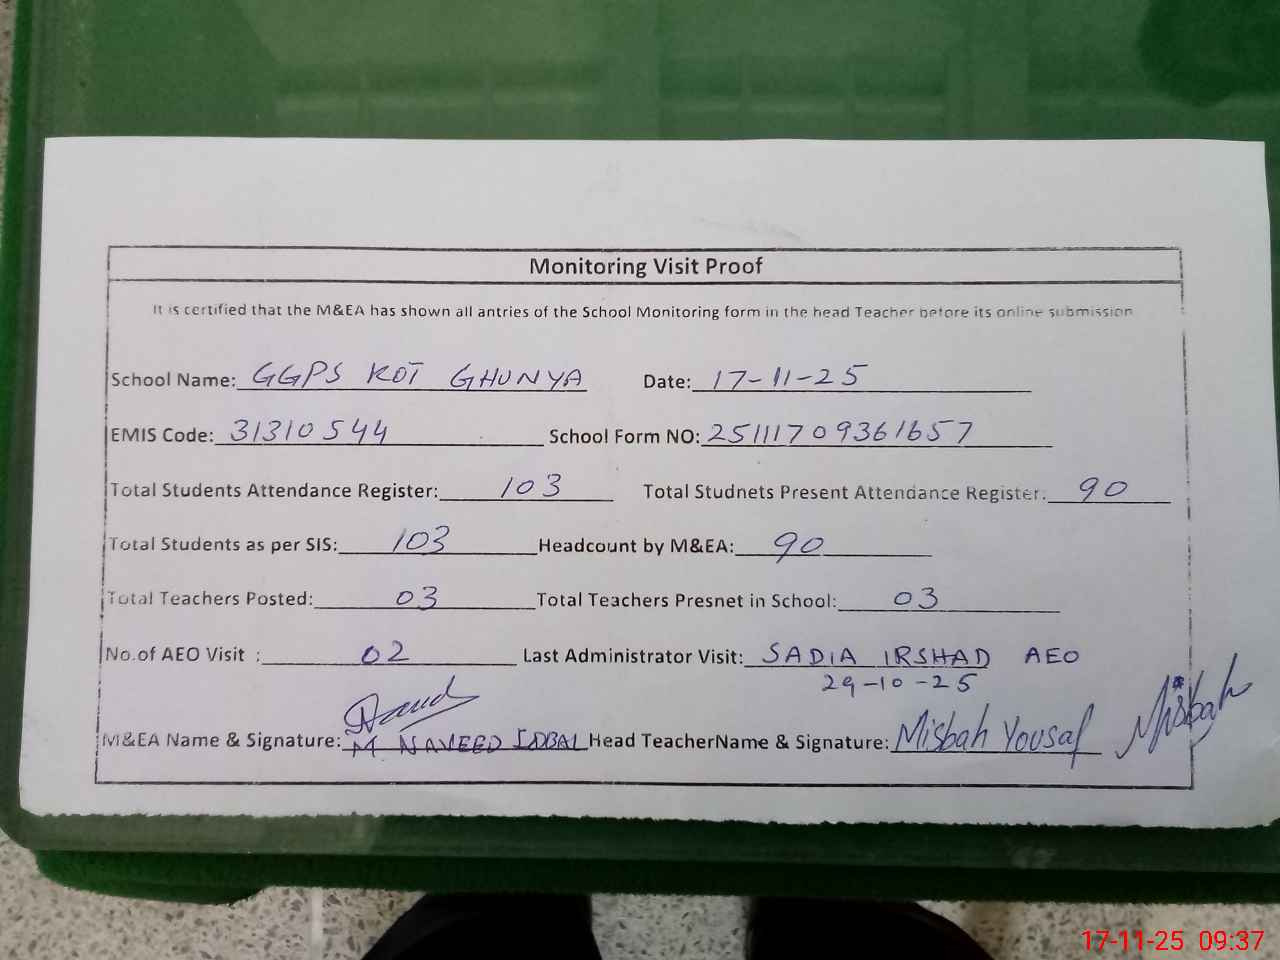 Monitoring Visit Proof
It is certified that the M&EA has shown all antries of the School Monitoring form in the head Teacher before its online submission
School Name: GGPS KOT GHUNYA Date: 17-11-25
EMIS Code: 31310544 School Form NO: 25111709361657
Total Students Attendance Register: 103 Total Studnets Present Attendance Register: 90
Total Students as per SIS: 103 Headcount by M&EA: 90
Total Teachers Posted: 03 Total Teachers Presnet in School: 03
No.of AEO Visit : 02 Last Administrator Visit: SADIA IRSHAD AEO
29-10-25
M&EA Name & Signature: M. NAVEED IQBAL Head TeacherName & Signature: Misbah Yousaf Misbah
17-11-25 09:37